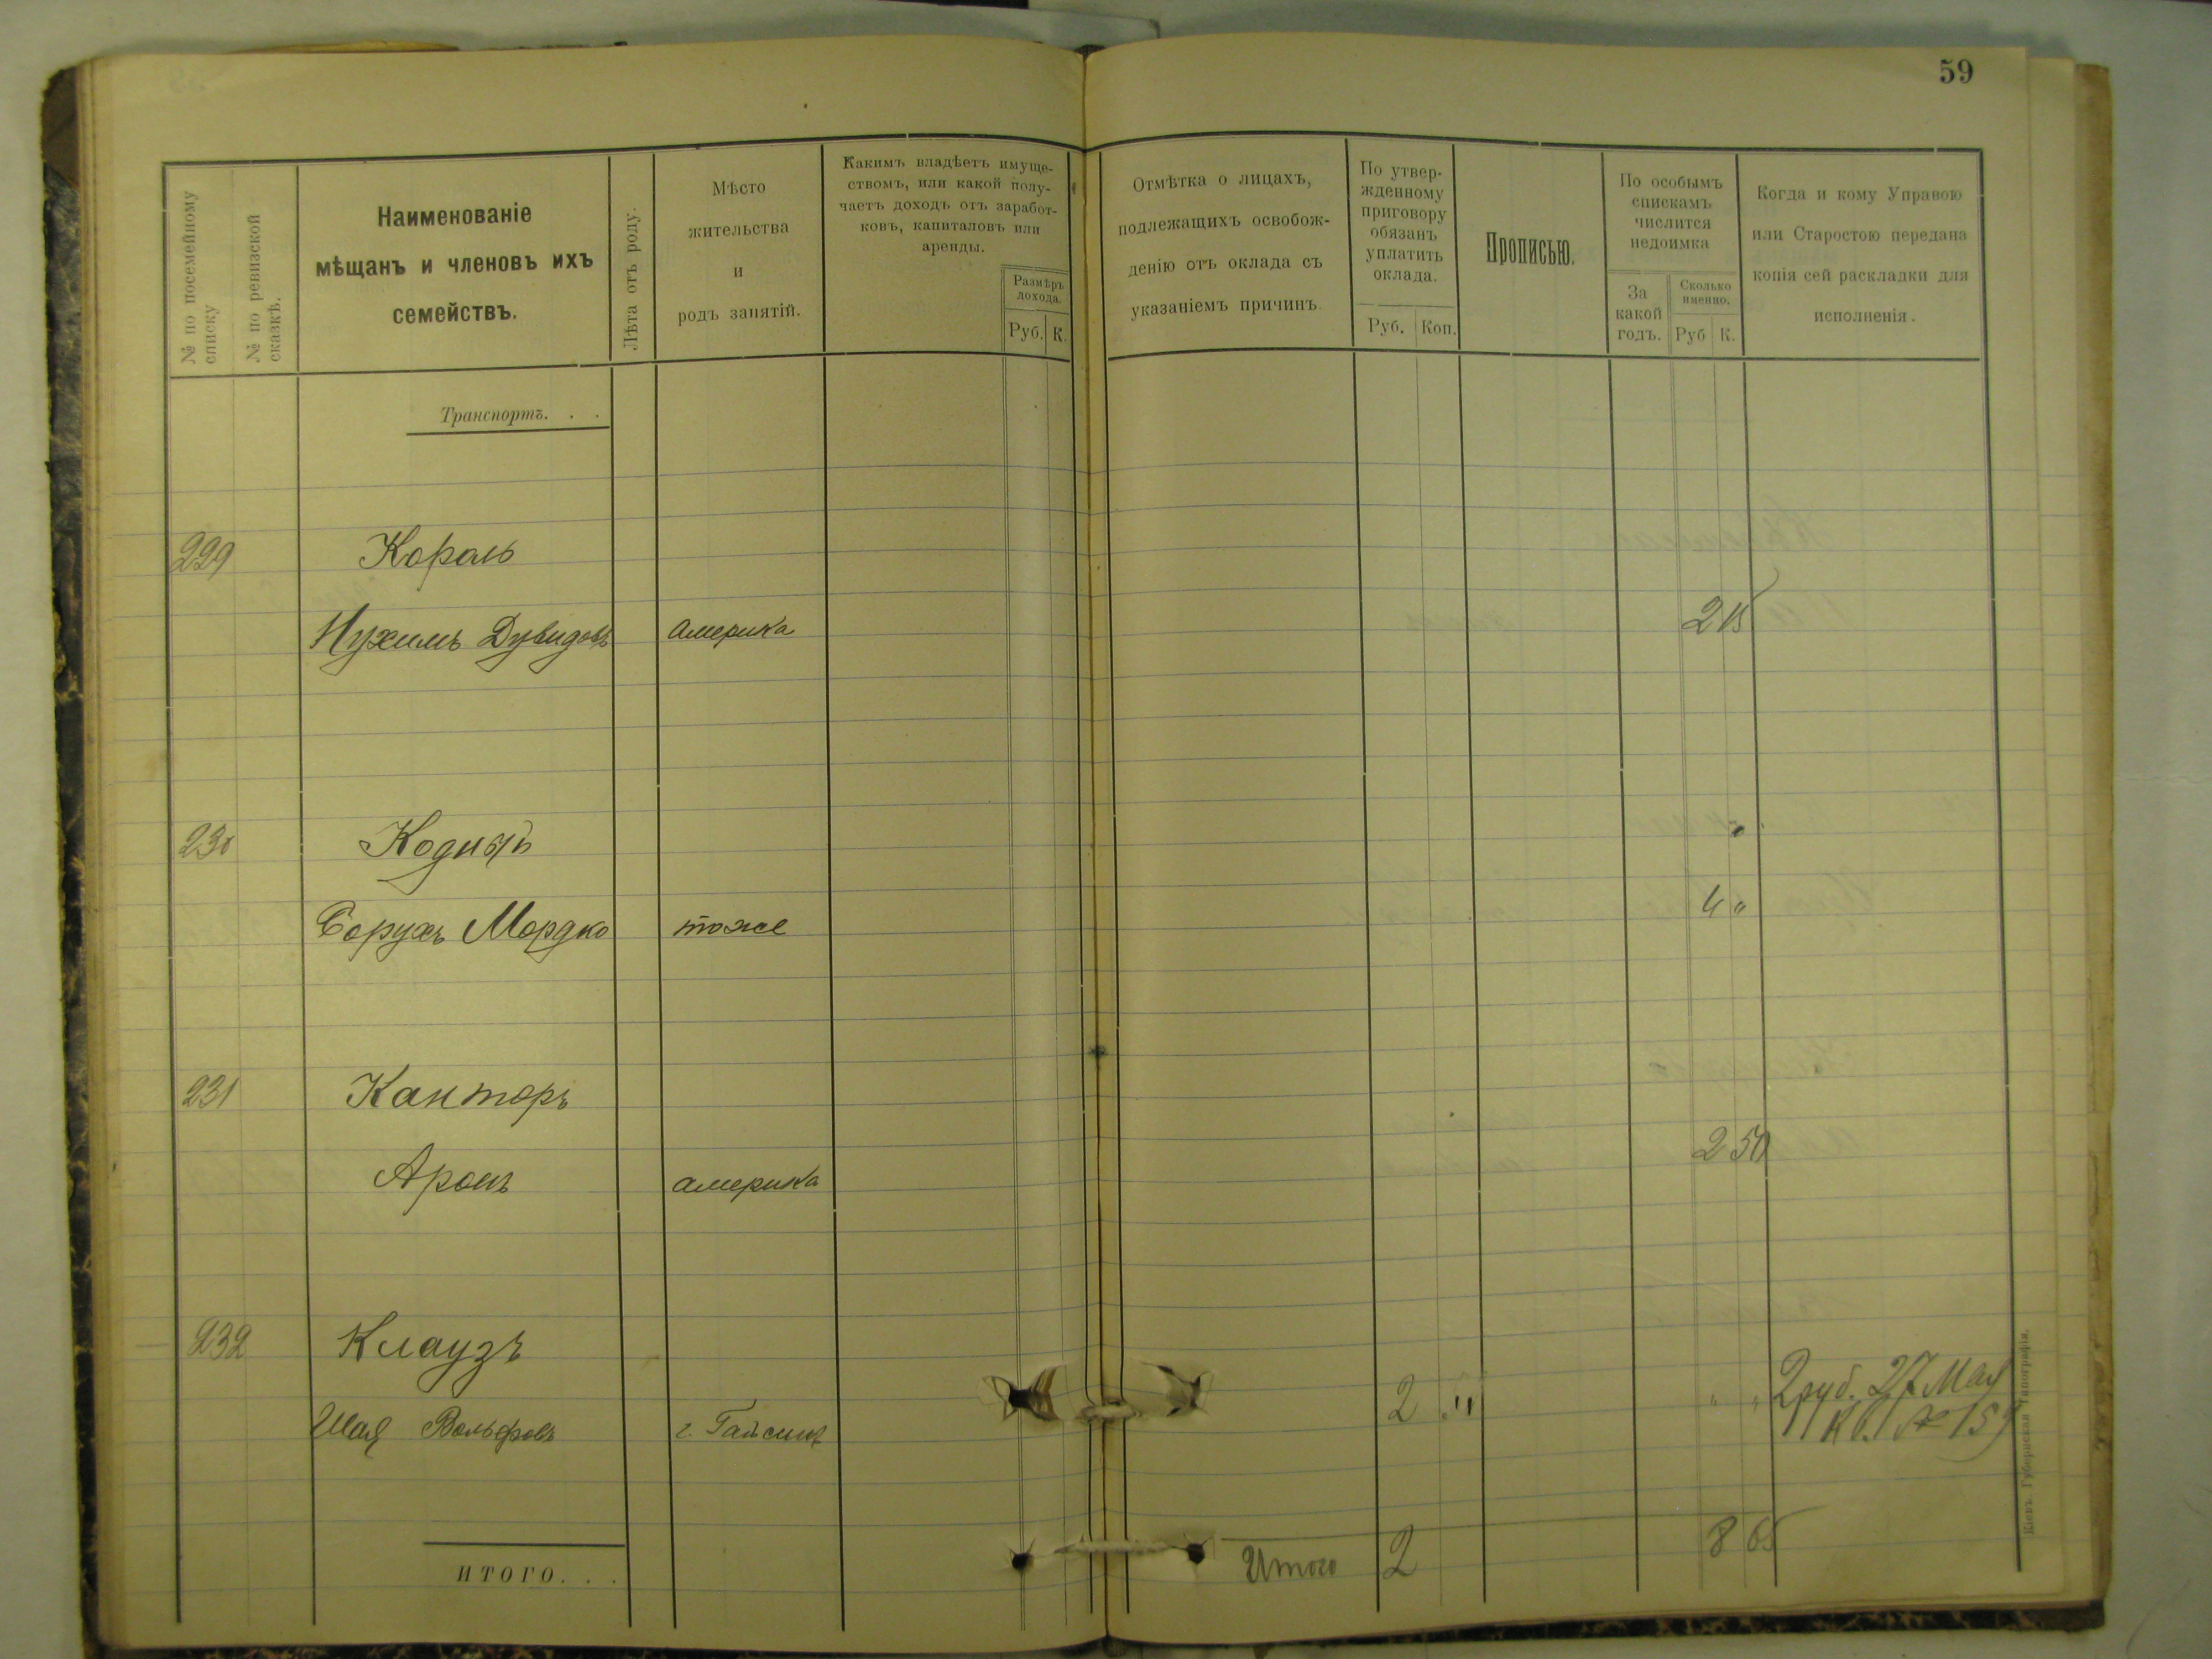 59
№ по посемейному списку
№ по ревизской сказкѣ.
Наименованіе
мѣщанъ и членовъ ихъ
семействъ.
Лѣта отъ роду.
Мѣсто
жительства
и
родъ занятій.
Какимъ владѣетъ имуще-
ствомъ, или какой полу-
чаетъ доходъ отъ заработ-
ковъ, капиталовъ или
аренды.
Размѣръ
дохода.
Руб. К.
Отмѣтка о лицахъ,
подлежащихъ освобож-
денію отъ оклада съ
указаніемъ причинъ.
По утвер-
жденному
приговору
обязанъ
уплатить
оклада.
Руб. Коп.
Прописью.
По особымъ
спискамъ
числится
недоимка
За
какой
годъ.
Сколько
именно.
Руб К.
Когда и кому Управою
или Старостою передана
копія сей раскладки для
исполненія.
Транспортъ. . .
229 Король
Нухимъ Дувидовъ Америка 2 15
230 Кодный
Борухъ Мордко тоже 4 "
231 Канторъ
Аронъ Америка 2 50
232 Клаузъ
Шая Вольфовъ г. Гайсинъ 2 " " " 2 руб. 27 Мая
Кв. № 159
ИТОГО. . .
Итого 2 8 65
Кіевъ. Губернская Типографія.